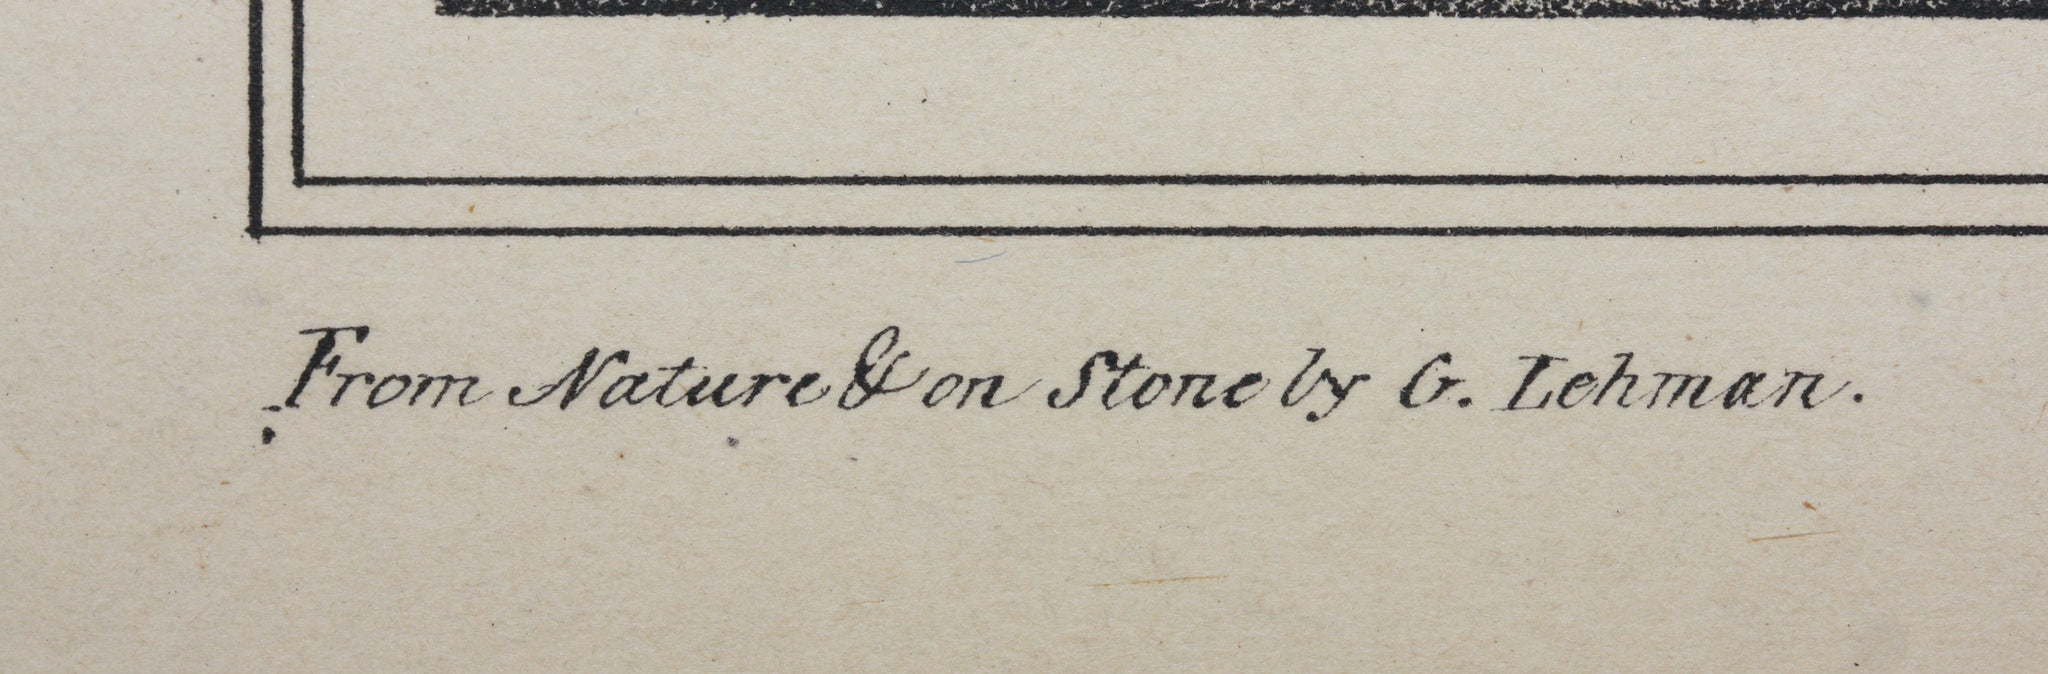 From Nature & on Stone by G. Lehman.